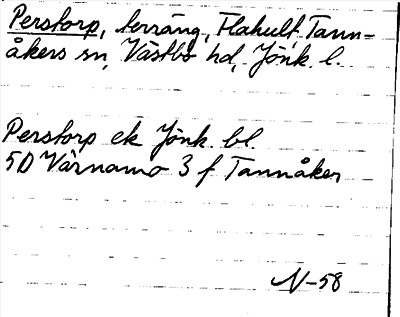 Perstorp, terräng, Flahult Tann-
åkers sn, Västbo hd, Jönk. l.
Perstorp ek Jönk. bl.
5D Värnamo 3 f Tannåker
N-58